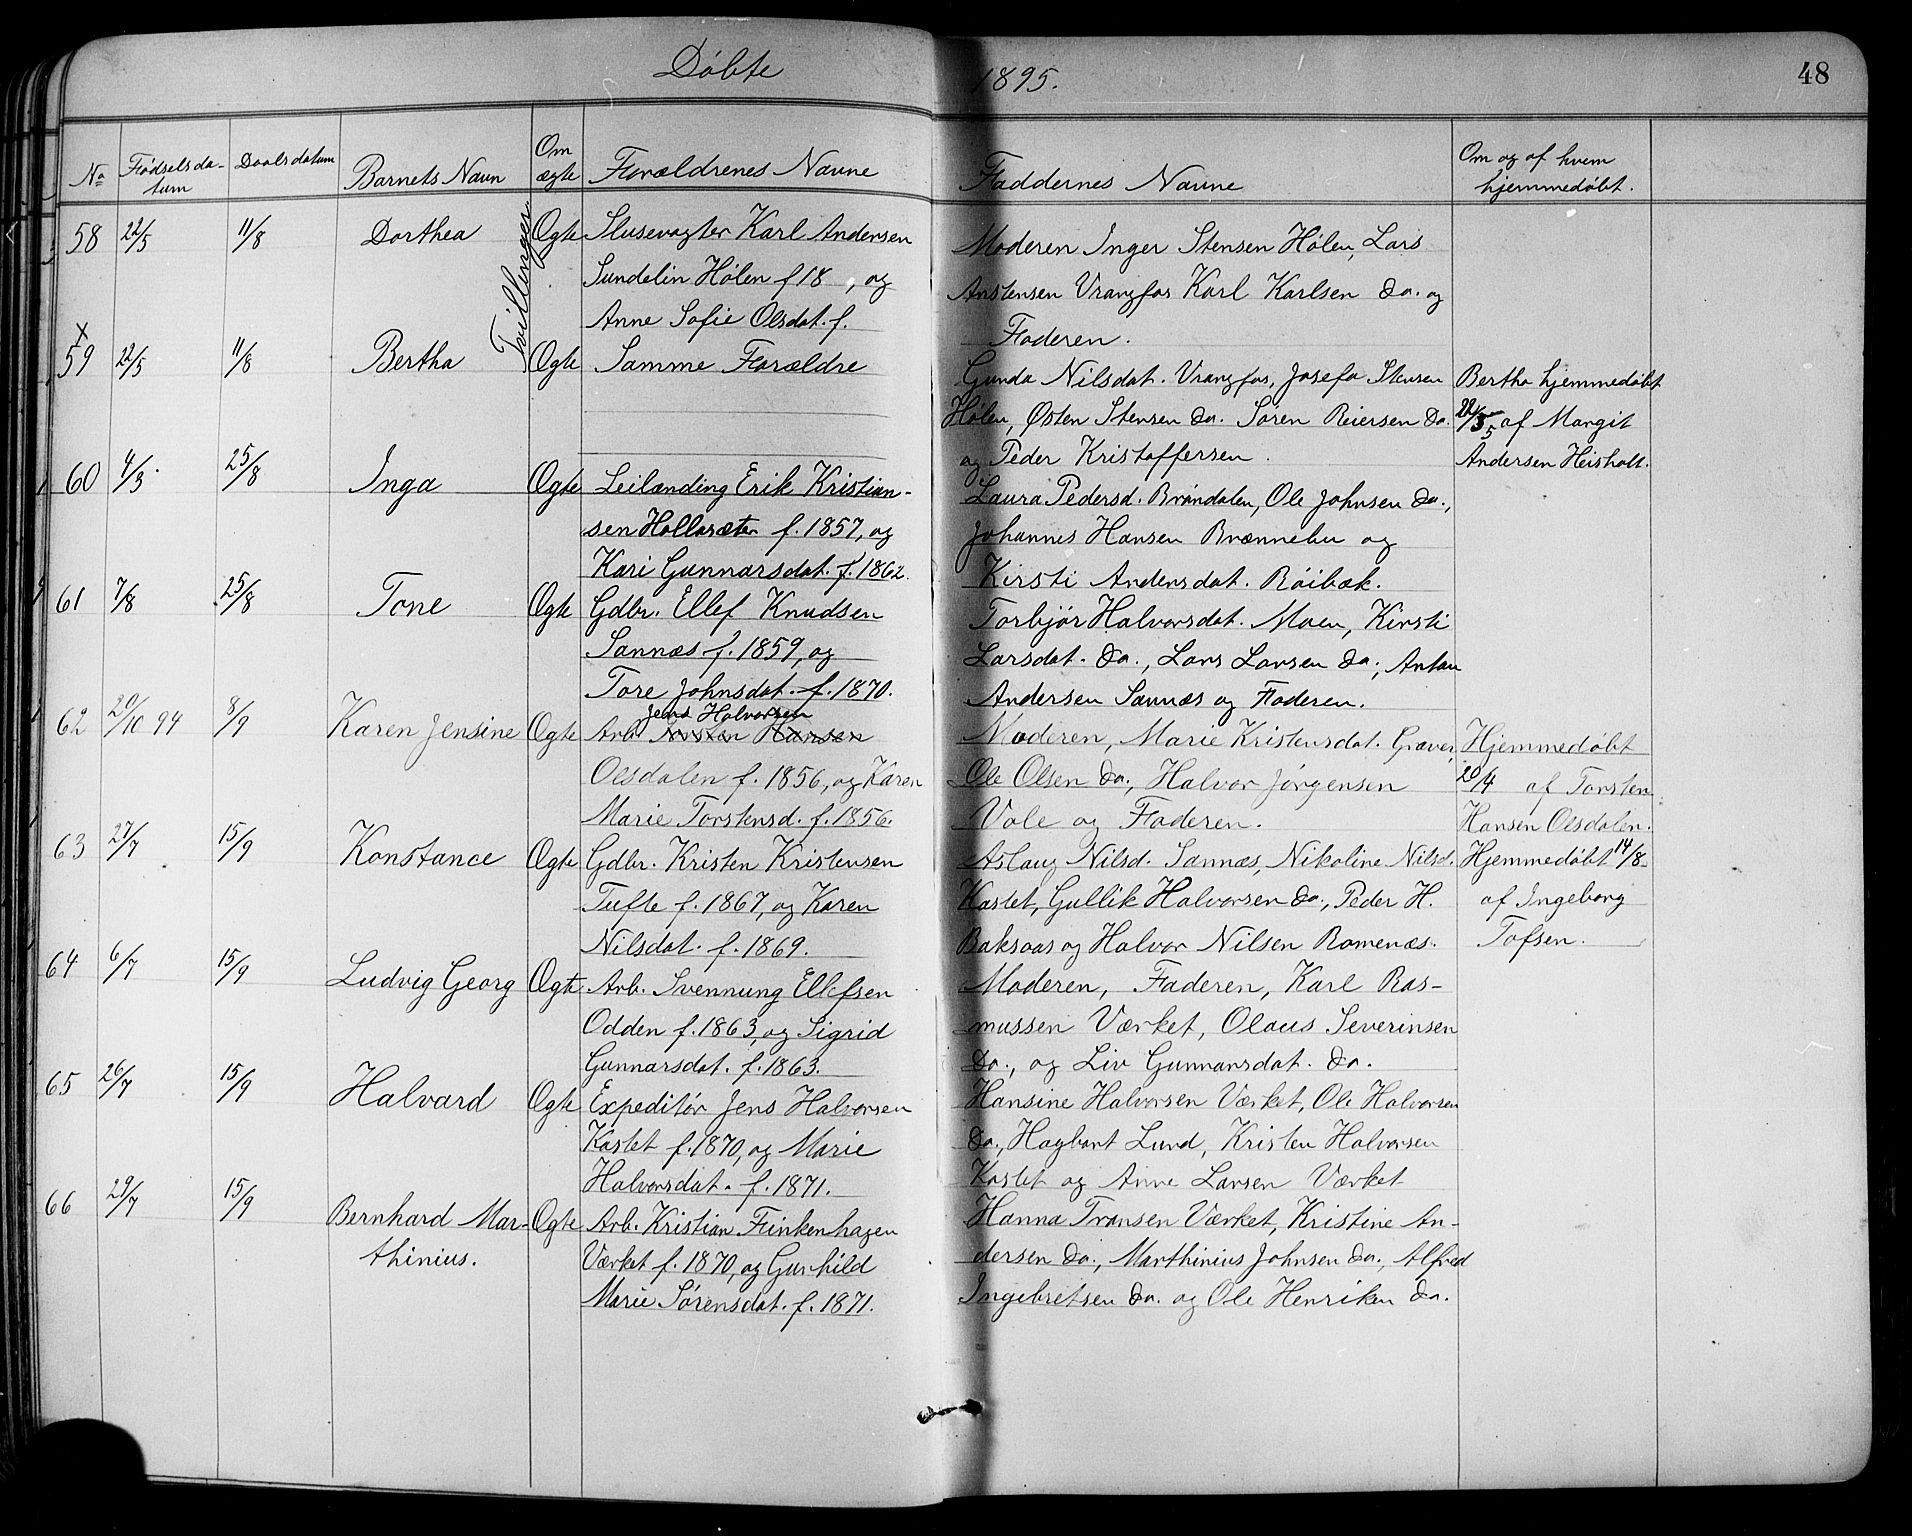 Døbte 1895. 48
No Fødselsda- Daabsdatum Barnets Navn Om Forældrenes Navne Faddernes Navne Om og af hvem
tum ægte hjemmedøbt.
Tvillinger
58 22/5 11/8 Dorthea Ægte Slusevogter Karl Andersen
Sundelin Hølen f 18 , og
Anne Sofie Olsdat. f.
Moderen Inger Stensen Hølen, Lars
Anstensen Vrangfos Karl Karlsen do. og
Faderen.
x
59 22/5 11/8 Bertha Ægte Samme Forældre
Gunda Nilsdat. Vrangfos, Josefa Stensen
Hølen, Østen Stensen do. Søren Reiersen do.
og Peder Kristoffersen.
Bertha hjemmedøbt
22/5 af Margit
Andersen Heisholt.
60 4/3. 25/8 Inga Ægte Leilænding Erik Kristian-
sen Hollasæter f. 1857, og
Kari Gunnarsdat. f. 1862.
Laura Pedersd. Brøndalen, Ole Johnsen do.,
Johannes Hansen Brænnebu og
Kirsti Andersdat. Røibæk.
61 7/8 25/8 Tone Ægte Gdbr. Ellef Knudsen
Sannæs f. 1859, og
Tore Johnsdat. f. 1870.
Torbjør Halvorsdat. Moen, Kirsti
Larsdat. do., Lars Larsen do., Anton
Andersen Sannæs og Faderen.
62 20/10 94 8/9 Karen Jensine Ægte Arb. Jens Halvorsen
Olsdalen f. 1856, og Karen
Marie Torstensd. f. 1856.
Moderen, Marie Kristensdat. Graver,
Ole Olsen do., Halvor Jørgensen
Vale og Faderen.
Hjemmedøbt
20/4 af Torsten
Hansen Olsdalen.
63 27/7 15/9 Konstance Ægte Gdbr. Kristen Kristensen
Tufte f. 1867, og Karen
Nilsdat. f. 1869.
Aslaug Nilsd. Sannæs, Nikoline Nilsd.
Kastet, Gullik Halvorsen do., Peder H.
Baksaas og Halvor Nilsen Romenæs.
Hjemmedøbt 14/8
af Ingeborg
Tofsen.
64 6/7 15/9 Ludvig Georg Ægte Arb. Svennung Ellefsen
Odden f. 1863, og Sigrid
Gunnarsdat. f. 1863.
Moderen, Faderen, Karl Ras-
mussen Værket, Olaus Severinsen
do., og Liv Gunnarsdat. do.
65 26/7 15/9 Halvard Ægte Expeditør Jens Halvorsen
Kastet f. 1870, og Marie
Halvorsdat. f. 1871.
Hansine Halvorsen Værket, Ole Halvorsen
do., Hagbart Lund, Kristen Halvorsen
Kastet og Anne Larsen Værket
66 29/7 15/9 Bernhard Mar-
thinius.
Ægte Arb. Kristian Finkenhagen
Værket f. 1870, og Gunhild
Marie Sørensdat. f. 1871.
Hanna Transen Værket, Kristine An-
dersen do., Marthinius Johnsen do., Alfred
Ingebretsen do. og Ole Henriken do.